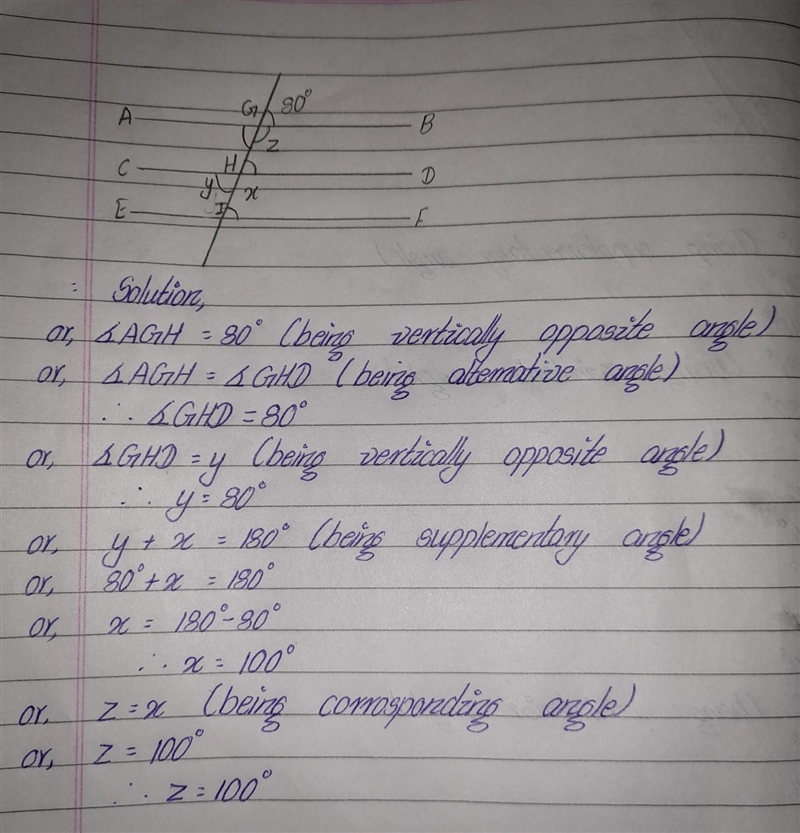 G 80°
A B
z
C H D
y x
E I F
: Solution,
or, ∡AGH = 80° (being vertically opposite angle)
or, ∡AGH = ∡GHD (being alternative angle)
∴ ∡GHD = 80°
or, ∡GHD = y (being vertically opposite angle)
∴ y = 80°
or, y + x = 180° (being supplementary angle)
or, 80° + x = 180°
or, x = 180° - 80°
∴ x = 100°
or, z = x (being corrosponding angle)
or, z = 100°
∴ z = 100°